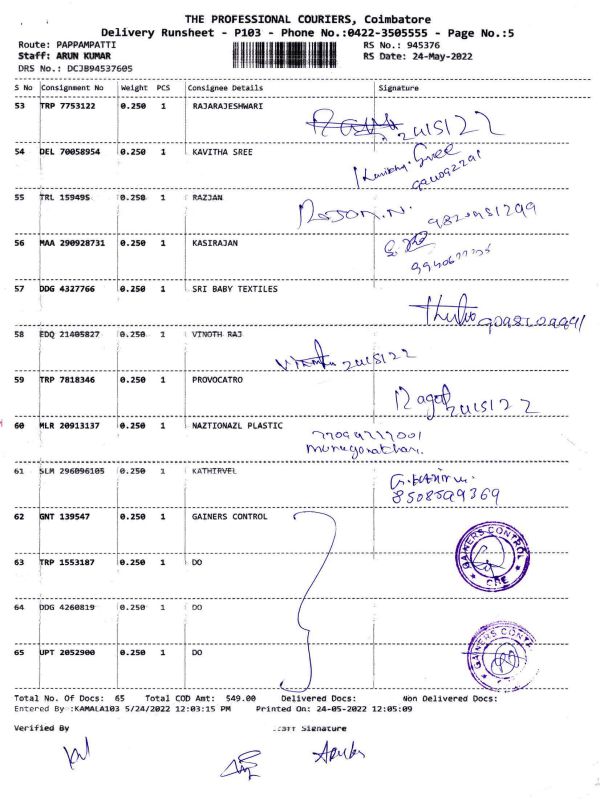 THE PROFESSIONAL COURIERS, Coimbatore
Delivery Runsheet - P103 - Phone No.:0422-3505555 - Page No.:5
Route: PAPPAMPATTI RS No.: 945376
Staff: ARUN KUMAR RS Date: 24-May-2022
DRS No.: DCJB94537605
S No Consignment No Weight PCS Consignee Details Signature
53 TRP 7753122 0.250 1 RAJARAJESHWARI
24/5/22
54 DEL 70058954 0.250 1 KAVITHA SREE
Kavitha. Sree
55 TRL 159495 0.250 1 RAZJAN
56 MAA 290928731 0.250 1 KASIRAJAN
57 DDG 4327766 0.250 1 SRI BABY TEXTILES
58 EDQ 21405827 0.250 1 VINOTH RAJ
24/5/22
59 TRP 7818346 0.250 1 PROVOCATRO
24/5/22
60 MLR 20913137 0.250 1 NAZTIONAZL PLASTIC
61 SLM 296096105 0.250 1 KATHIRVEL
8508599369
62 GNT 139547 0.250 1 GAINERS CONTROL
GAINERS CONTROL
CBE
63 TRP 1553187 0.250 1 DO
64 DDG 4260819 0.250 1 DO
GAINERS CONT
65 UPT 2052900 0.250 1 DO
Total No. Of Docs: 65 Total COD Amt: 549.00 Delivered Docs: Non Delivered Docs:
Entered By :KAMALA103 5/24/2022 12:03:15 PM Printed On: 24-05-2022 12:05:09
Verified By Staff Signature